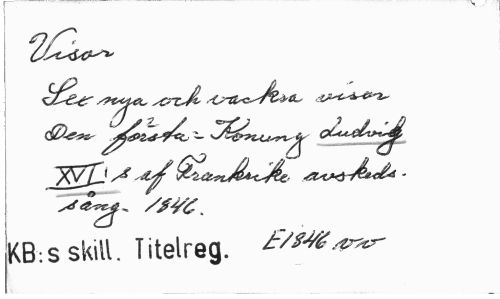 Visor
Sex nya och vackra visor
Den första = Konung Ludvig
XVI:s af Frankrike avskeds-
sång. 1846.
KB:s skill. Titelreg. E1846 vv